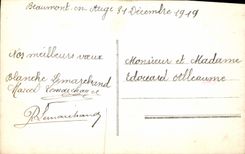 Beaumont en Auge 31 Décembre 1919
Nos meilleurs vœux
Blanche Lemarchand
Marcel Lemarchand
Lemarchand
Monsieur et Madame
Edouard Alleaume